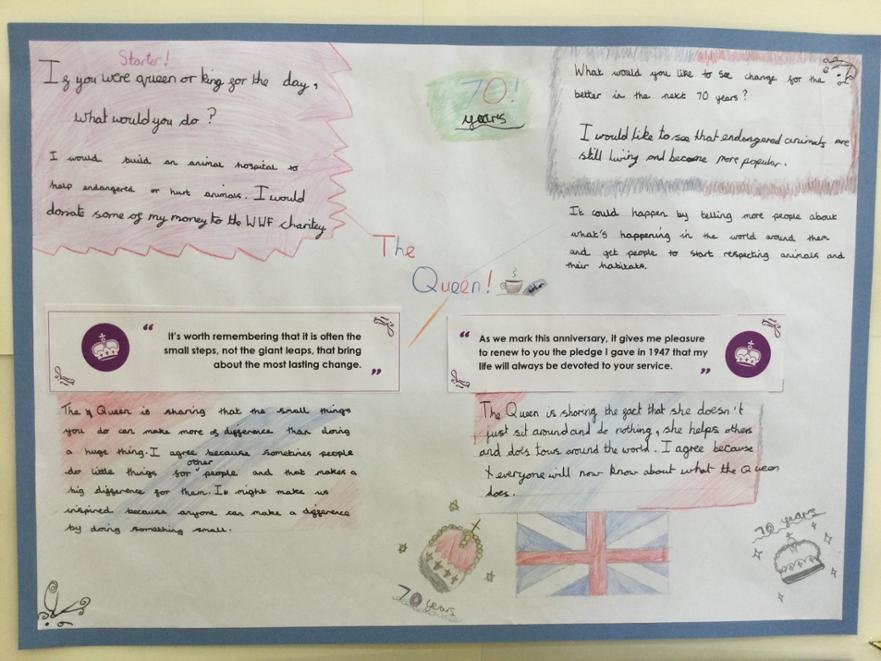 Starter!
If you were queen or king for the day,
what would you do?
I would build an animal hospital to
help endangered or hurt animals. I would
donate some of my money to the WWF charitey
70!
years
What would you like to see change for the
better in the next 70 years?
I would like to see that endengered animals are
still living and become more popular.
It could happen by telling more people about
what's happening in the world around them
and get people to start respecting animals and
their habitats.
The
Queen!
“ It's worth remembering that it is often the
small steps, not the giant leaps, that bring
about the most lasting change. ”
The Queen is sharing that the small things
you do can make more of difference than doing
a huge thing. I agree because sometimes people
do little things for other people and that makes a
big difference for them. It might make us
inspired because anyone can make a difference
by doing something small.
“ As we mark this anniversary, it gives me pleasure
to renew to you the pledge I gave in 1947 that my
life will always be devoted to your service. ”
The Queen is sharing the fact that she doesn't
just sit around and do nothing, she helps others
and does tours around the world. I agree because
everyone will now know about what the Queen
does.
70 years
70 years